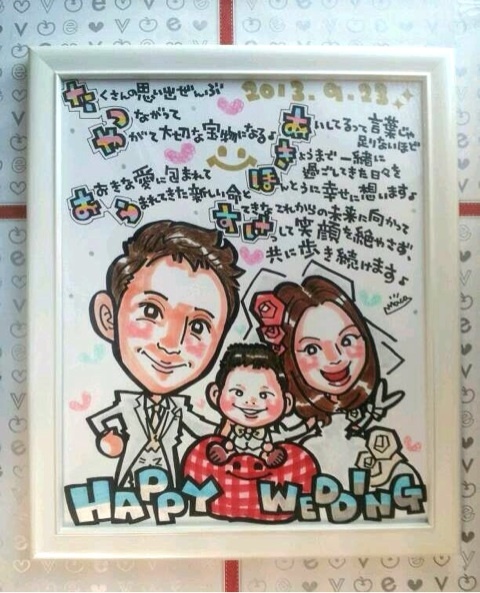 2013.9.23
たくさんの思い出ぜんぶ
つながって
やがて大切な宝物になる♪
あいしてるって言葉じゃ
足りないほど
きょうまで一緒に
過ごしてきた日々を
ほんとうに幸せに想います♪
おおきな愛に包まれて
うまれてきた新しい命と
すてきなこれからの未来に向かって
けっして笑顔を絶やさず、
共に歩き続けます♪
HAPPY WEDDING